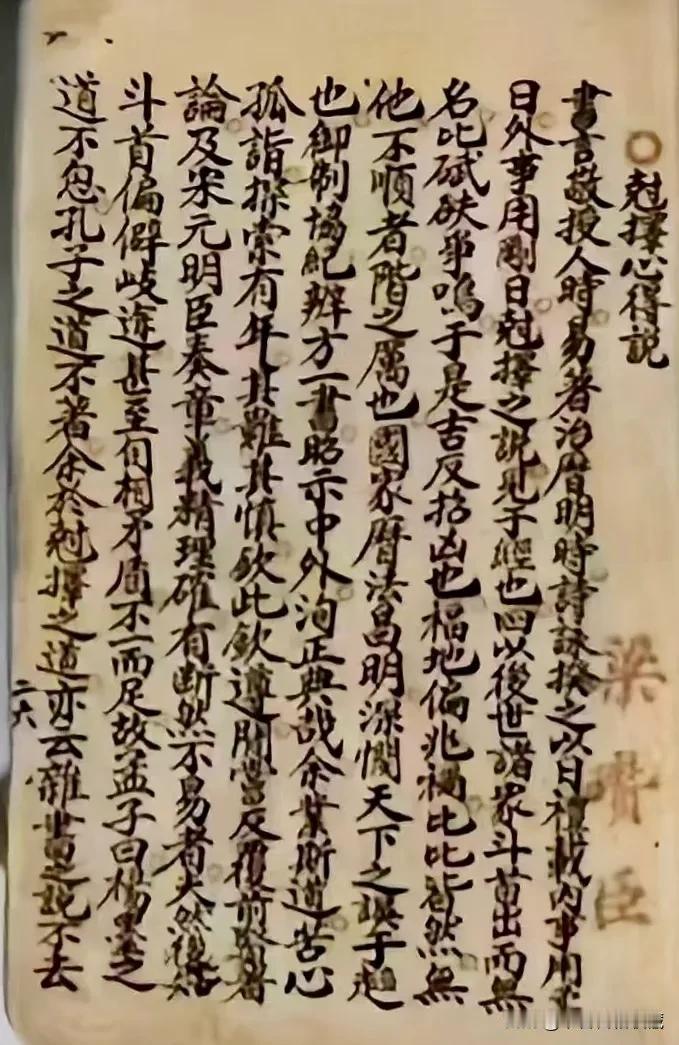 尅擇心得説
梁
臣
書言敬授人時易著治曆明時詩詠揆之以日禮載內事用柔
日外事用剛日尅擇之說見于經也回以後世諸家斗首出而無
名比砆砆爭鳴于是吉反招凶也福地偏兆禍比比皆然無
他不順者階之厲也國家曆法昌明深憫天下之誤于趨
也御制協紀辨方一書昭示中外洵正典哉余業斯道苦心
孤詣探索有年其難其慎欽此欽遵間嘗反覆前賢著
論及宋元明臣奏章義精理確有断然不易者夫然後知
斗首偏僻歧途甚至自相矛盾不一而足故孟子曰楊墨之
道不息孔子之道不著余於尅擇之道亦云雜書之說不去
二六